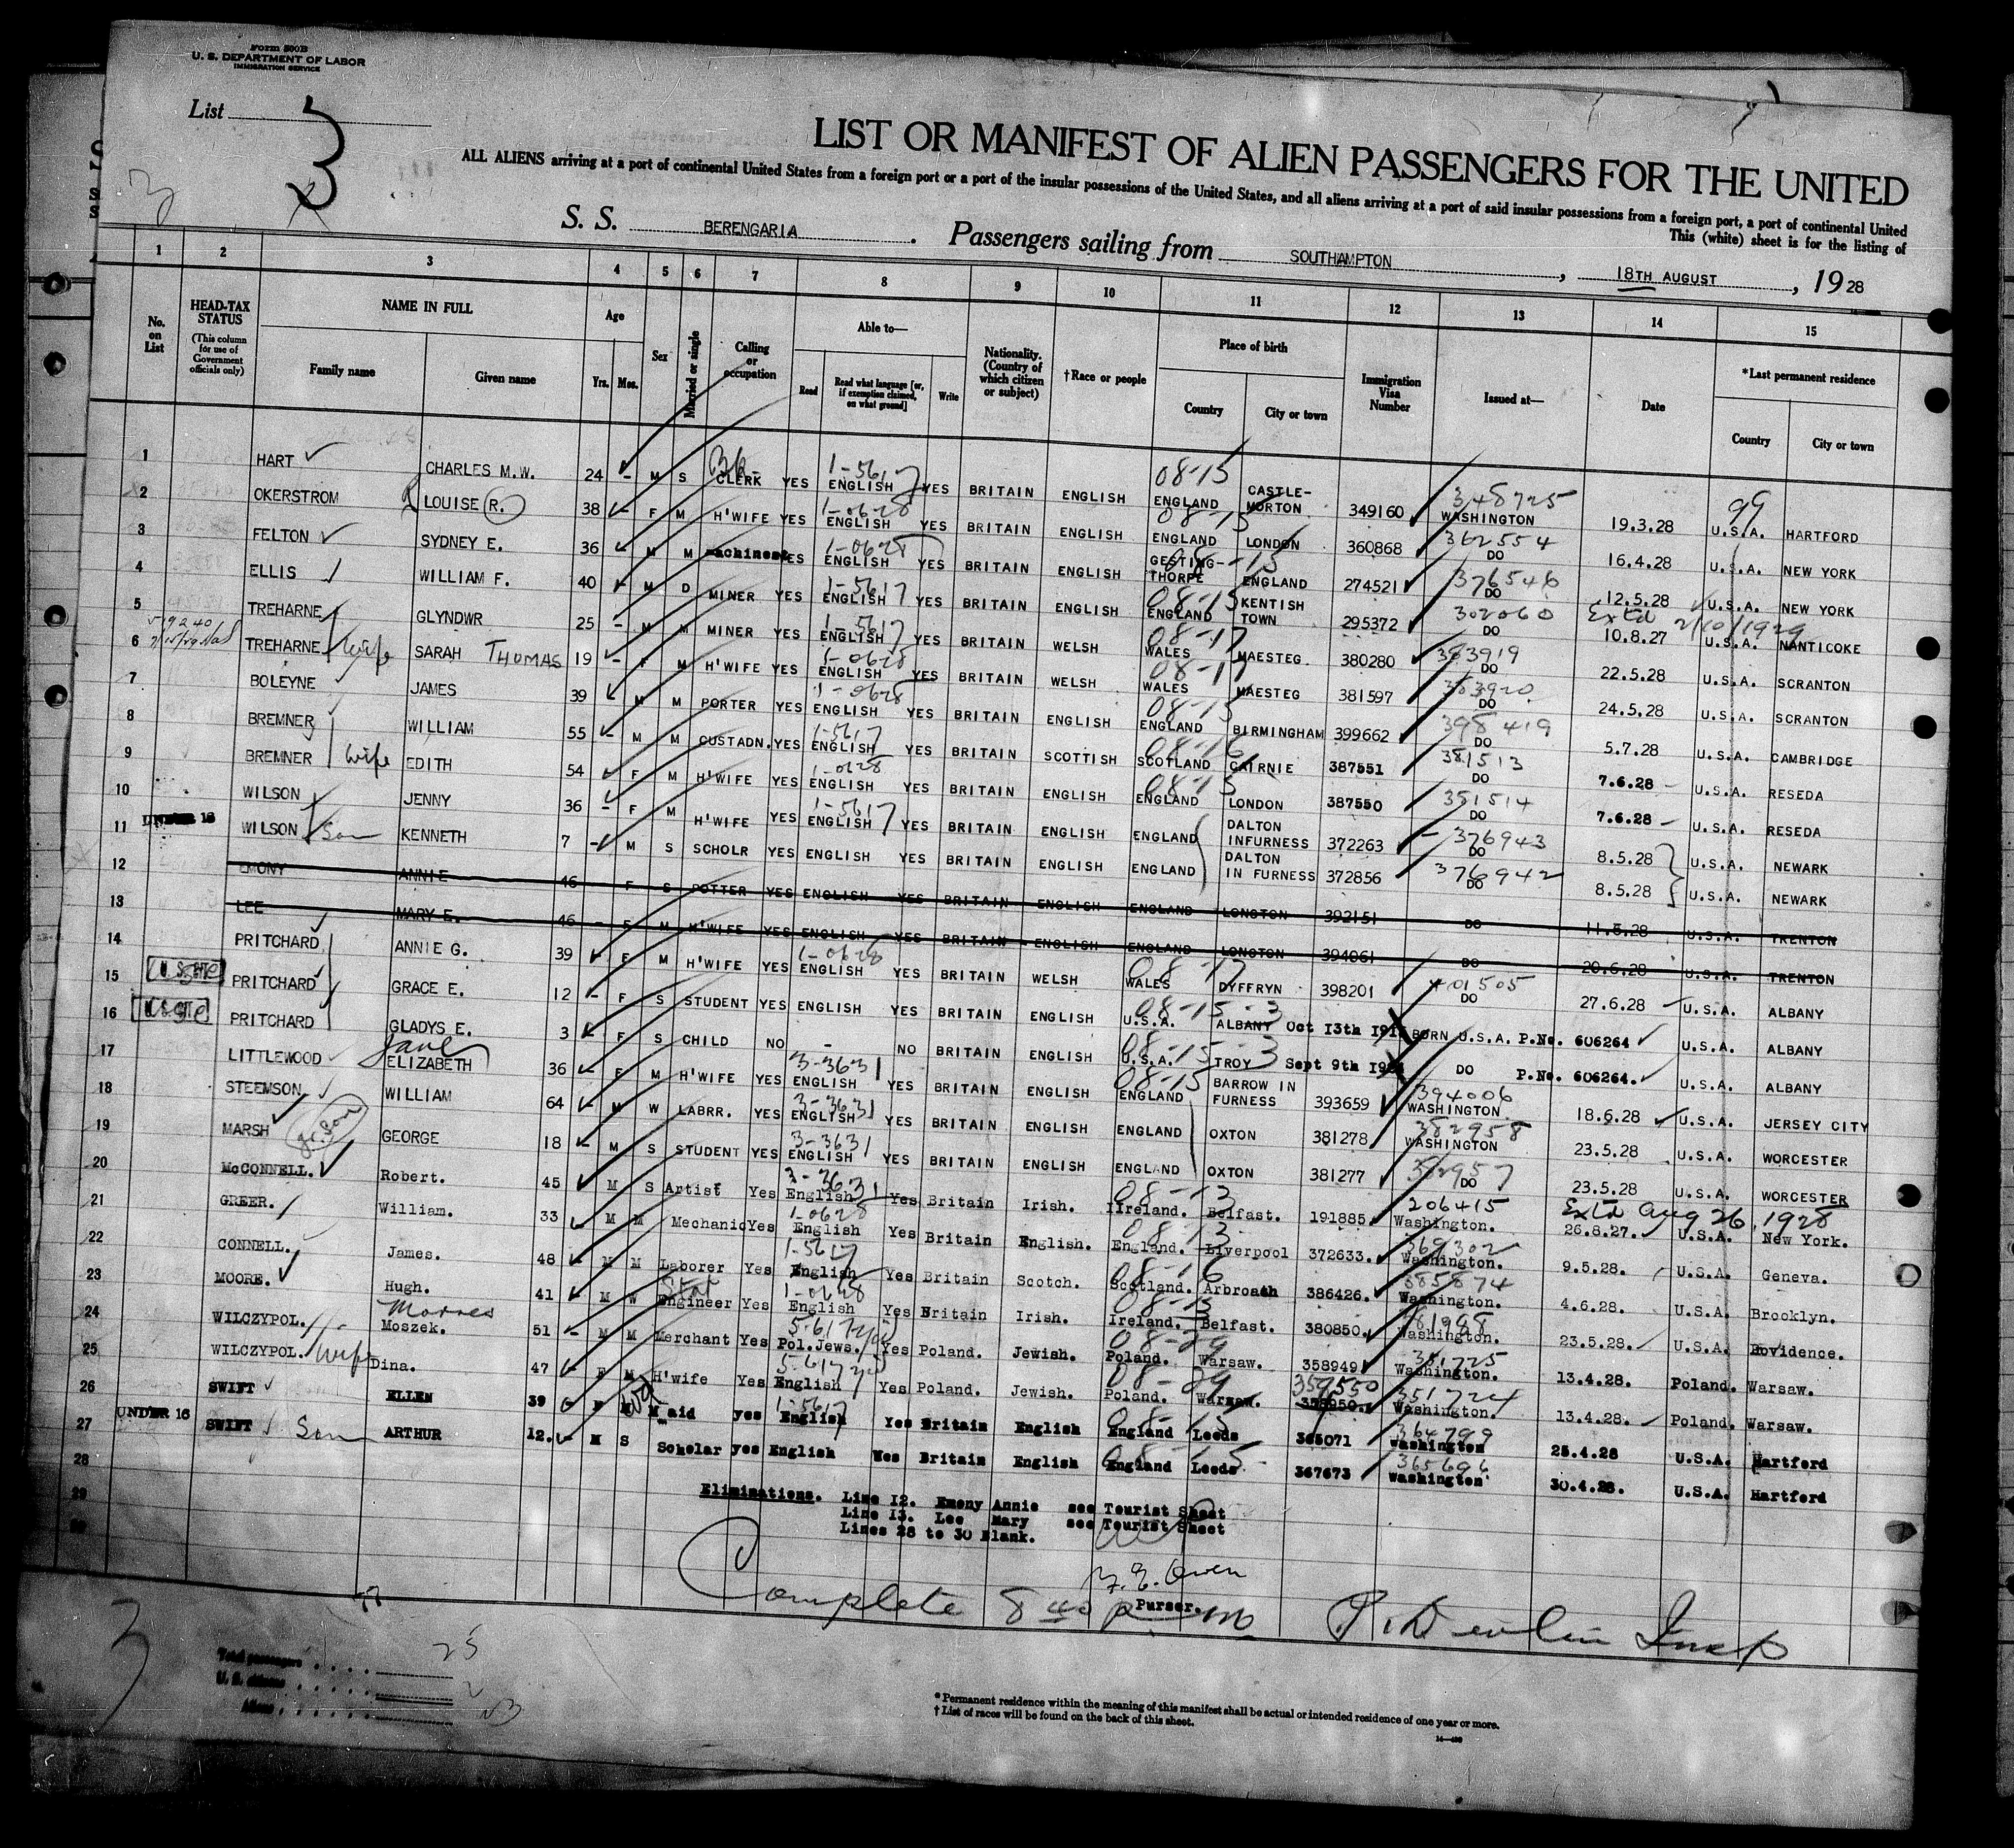 Form 500B
U. S. DEPARTMENT OF LABOR
IMMIGRATION SERVICE
List 3
LIST OR MANIFEST OF ALIEN PASSENGERS FOR THE UNITED
ALL ALIENS arriving at a port of continental United States from a foreign port or a port of the insular possessions of the United States, and all aliens arriving at a port of said insular possessions from a foreign port, a port of continental United
This (white) sheet is for the listing of
S. S. BERENGARIA. Passengers sailing from SOUTHAMPTON, 18TH AUGUST, 1928
1 2 3 4 5 6 7 8 9 10 11 12 13 14 15
No. on List
HEAD-TAX STATUS (This column for use of Government officials only)
NAME IN FULL
Family name Given name
Age
Yrs. Mos.
Sex
Married or single
Calling or occupation
Able to—
Read Read what language [or, if exemption claimed, on what ground] Write
Nationality. (Country of which citizen or subject)
†Race or people
Place of birth
Country City or town
Immigration Visa Number
Issued at—
Date
*Last permanent residence
Country City or town
1 HART CHARLES M.W. 24 - M S CLERK YES 1-5617 ENGLISH YES BRITAIN ENGLISH 08-15 ENGLAND CASTLE-MORTON 349160 348725 WASHINGTON 19.3.28 99 U.S.A. HARTFORD
2 OKERSTROM LOUISE R. 38 - F M H'WIFE YES 1-0628 ENGLISH YES BRITAIN ENGLISH 08-15 ENGLAND LONDON 360868 362554 DO 16.4.28 U.S.A. NEW YORK
3 FELTON SYDNEY E. 36 M M machinest YES 1-0628 ENGLISH YES BRITAIN ENGLISH 08-15 GESTING-THORPE ENGLAND 274521 376546 DO 12.5.28 U.S.A. NEW YORK
4 ELLIS WILLIAM F. 40 - M D MINER YES 1-5617 ENGLISH YES BRITAIN ENGLISH 08-15 ENGLAND KENTISH TOWN 295372 302060 DO Extd 2/10/1929 10.8.27 U.S.A. NANTICOKE
5 TREHARNE GLYNDWR 25 - M M MINER YES 1-5617 ENGLISH YES BRITAIN WELSH 08-17 WALES MAESTEG 380280 383919 DO 22.5.28 U.S.A. SCRANTON
6 TREHARNE wife SARAH THOMAS 19 - F M H'WIFE YES 1-0628 ENGLISH YES BRITAIN WELSH 08-17 WALES MAESTEG 381597 383920 DO 24.5.28 U.S.A. SCRANTON
7 BOLEYNE JAMES 39 M M PORTER YES 1-0628 ENGLISH YES BRITAIN ENGLISH 08-15 ENGLAND BIRMINGHAM 399662 398419 DO 5.7.28 U.S.A. CAMBRIDGE
8 BREMNER WILLIAM 55 - M M CUSTADN. YES 1-5617 ENGLISH YES BRITAIN SCOTTISH 08-16 SCOTLAND CAIRNIE 387551 381513 DO 7.6.28 U.S.A. RESEDA
9 BREMNER wife EDITH 54 F M H'WIFE YES 1-0628 ENGLISH YES BRITAIN ENGLISH 08-15 ENGLAND LONDON 387550 381514 DO 7.6.28 U.S.A. RESEDA
10 WILSON JENNY 36 - F M H'WIFE YES 1-5617 ENGLISH YES BRITAIN ENGLISH ENGLAND DALTON INFURNESS 372263 376943 DO 8.5.28 U.S.A. NEWARK
UNDER 16
11 WILSON Son KENNETH 7 - M S SCHOLR YES ENGLISH YES BRITAIN ENGLISH ENGLAND DALTON IN FURNESS 372856 376942 DO 8.5.28 U.S.A. NEWARK
12 EMONY ANNIE 46 F S POTTER YES ENGLISH YES BRITAIN ENGLISH ENGLAND LONGTON 392151 DO 11.6.28 U.S.A. TRENTON
13 LEE MARY E. 46 - F M H'WIFE YES ENGLISH YES BRITAIN ENGLISH ENGLAND LONGTON 394061 DO 20.6.28 U.S.A. TRENTON
14 PRITCHARD ANNIE G. 39 F M H'WIFE YES 1-0628 ENGLISH YES BRITAIN WELSH 08-17 WALES DYFFRYN 398201 401505 DO 27.6.28 U.S.A. ALBANY
15 PRITCHARD GRACE E. 12 - F S STUDENT YES ENGLISH YES BRITAIN ENGLISH 08-15-3 U.S.A. ALBANY Oct 13th BORN U.S.A. P.No. 606264 U.S.A. ALBANY
16 PRITCHARD GLADYS E. 3 F S CHILD NO - NO BRITAIN ENGLISH 08-15-3 U.S.A. TROY Sept 9th DO P.No. 606264. U.S.A. ALBANY
17 LITTLEWOOD Jane ELIZABETH 36 - F M H'WIFE YES 3-3631 ENGLISH YES BRITAIN ENGLISH 08-15 ENGLAND BARROW IN FURNESS 393659 394006 WASHINGTON 18.6.28 U.S.A. JERSEY CITY
18 STEEMSON WILLIAM 64 - M W LABRR. YES 3-3631 ENGLISH YES BRITAIN ENGLISH ENGLAND OXTON 381278 382958 WASHINGTON 23.5.28 U.S.A. WORCESTER
19 MARSH gr. son GEORGE 18 - M S STUDENT YES 3-3631 ENGLISH YES BRITAIN ENGLISH ENGLAND OXTON 381277 382957 DO 23.5.28 U.S.A. WORCESTER
20 McCONNELL. Robert. 45 M S Artist Yes 3-3631 English Yes Britain Irish. 08-13 Ireland. Belfast. 191885 206415 Washington. Extd Aug 26, 1928 26.8.27. U.S.A. New York.
21 GREER. William. 33 M M Mechanic Yes 1-0628 English Yes Britain English. 08-13 England. Liverpool 372633. 369302 Washington. 9.5.28. U.S.A. Geneva.
22 CONNELL. James. 48 - M M Laborer Yes 1-5617 English Yes Britain Scotch. 08-16 Scotland. Arbroath 386426. 385874 Washington. 4.6.28. U.S.A. Brooklyn.
23 MOORE. Hugh. 41 M W Stat Engineer Yes 1-0628 English Yes Britain Irish. 08-13 Ireland. Belfast. 380850. 381988 Washington. 23.5.28 U.S.A. Providence.
24 WILCZYPOL. Morres Moszek. 51 - M M Merchant Yes Pol.Jews. Yes Poland. Jewish. 08-29 Poland. Warsaw. 358949 351725 Washington. 13.4.28. Poland. Warsaw.
25 WILCZYPOL. wife Dina. 47 F M H'wife Yes English Yes Poland. Jewish. 08-29 Poland. Warsaw. 359550 358950. 351724 Washington. 13.4.28. Poland. Warsaw.
26 SWIFT ELLEN 39 F Wd Maid yes 1-5617 English Yes Britain English 08-15 England Leeds 365071 364799 Washington 25.4.28 U.S.A. Hartford
UNDER 16
27 SWIFT Son ARTHUR 12. - M S Scholar yes English Yes Britain English 08-15 England Leeds 367673 365696 Washington 30.4.28. U.S.A. Hartford
28
29
30
Eliminations. Line 12. Emony Annie see Tourist Sheet
Line 13. Lee Mary see Tourist Sheet
Lines 28 to 30 Blank.
Purser.
Complete 8 40 p m
P. Devlin Insp
Total passengers 25
U. S. citizens 2
Aliens 23
* Permanent residence within the meaning of this manifest shall be actual or intended residence of one year or more.
† List of races will be found on the back of this sheet.